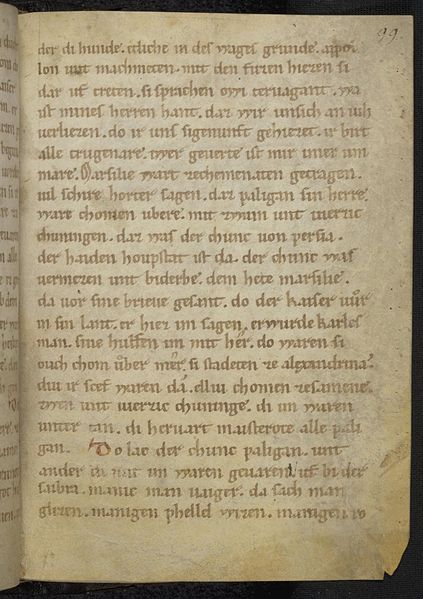 99.
der di hunde. etliche in des wages grunde. appol
lon unt machmeten. mit den fuzen hiezen si
dar uf treten. si sprachen owi tervagant. wa
ist mines herren hant. daz wir unsich an iuh
verliezen. do ir uns sigenunft gehiezet. ir birt
alle trugenare. iwer geverte ist mir imer un
mare. Marsilie wart zechemenaten getragen.
vil schire horter sagen. daz paligan sin herre.
ware chomen ubere. mit zwain unt vierzic
chuningen. daz was der chunc von persia.
der haiden houptstat ist da. der chunc was
vermezen unt biderbe. dem hete marsilie.
da vor sine brieve gesant. do der kaiser vuor
in sin lant. er hiez im sagen. er wurde karles
man. sine hulfen im mit her. do waren si
ouch chom uber mer. si stadeten ze alexandrina.
diu ir scef waren da. elliu chomen zesamene.
zwen unt vierzic chuninge. di im waren
unter tan. di hervart maisterote alle pali
gan. Do lac der chunc paligan. unt
ander di mit im waren gevaren. uf bi der
saibra. manic man vaiger. da sach man
giezen. manigen phelld wizen. manigen ro